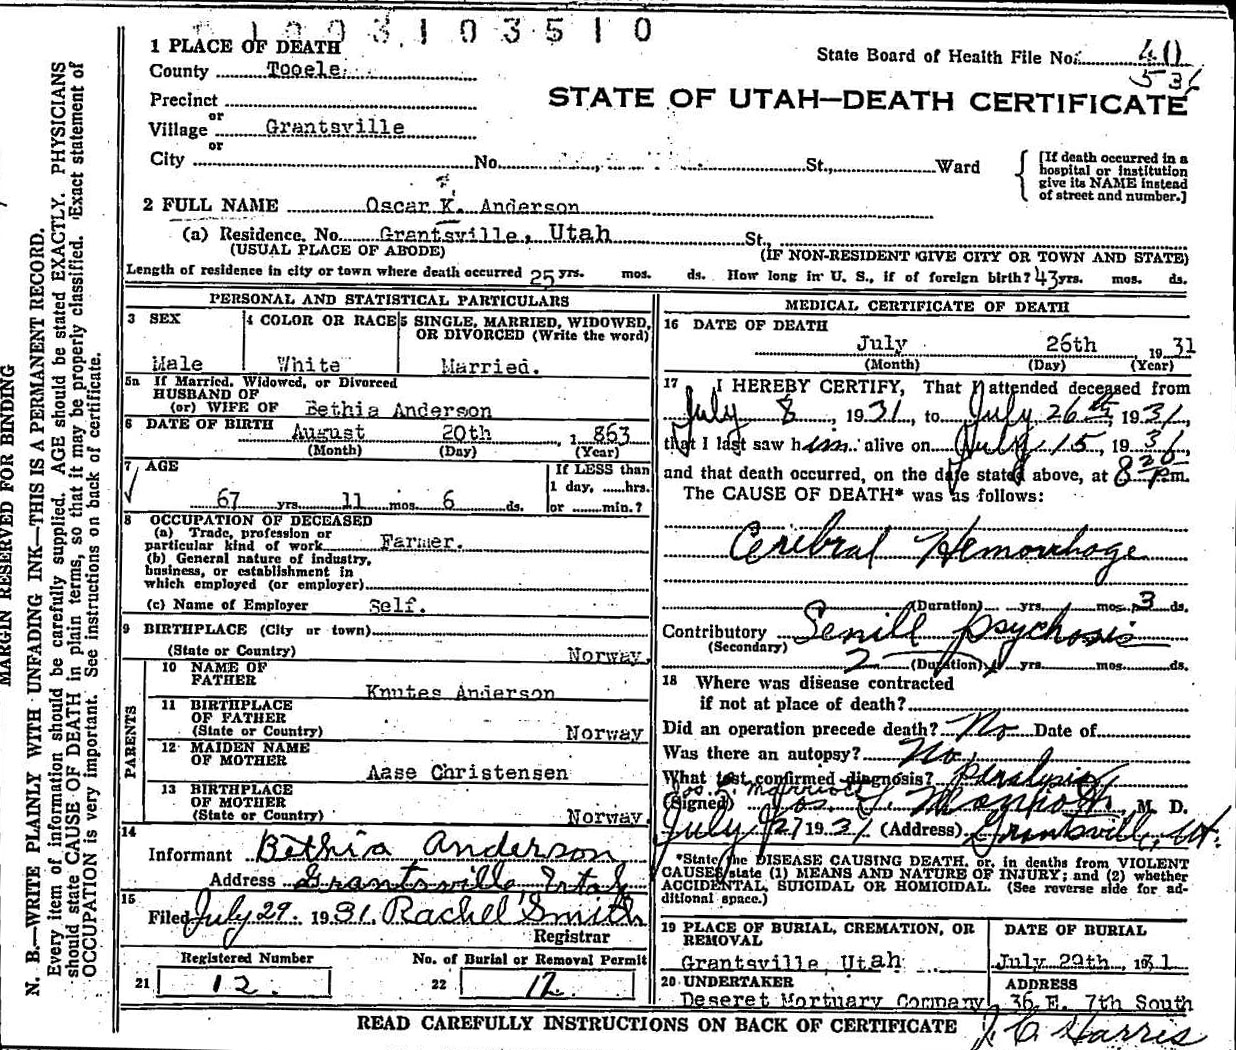 1003103510
1 PLACE OF DEATH
State Board of Health File No. 40
County Tooele
536
Precinct
STATE OF UTAH—DEATH CERTIFICATE
or
Village Grantsville
or
City No. St., Ward
[If death occurred in a hospital or institution give its NAME instead of street and number.]
2 FULL NAME Oscar K. Anderson
(a) Residence, No. Grantsville, Utah St.,
(USUAL PLACE OF ABODE) (IF NON-RESIDENT GIVE CITY OR TOWN AND STATE)
Length of residence in city or town where death occurred 25 yrs. mos. ds. How long in U. S., if of foreign birth? 43 yrs. mos. ds.
PERSONAL AND STATISTICAL PARTICULARS
3 SEX 4 COLOR OR RACE 5 SINGLE, MARRIED, WIDOWED,
OR DIVORCED (Write the word)
Male White Married.
5a If Married, Widowed, or Divorced
HUSBAND OF
(or) WIFE OF Bethia Anderson
6 DATE OF BIRTH August 20th, 1863
(Month) (Day) (Year)
7 AGE If LESS than
1 day, ......hrs.
67 yrs. 11 mos. 6 ds. or ......min.?
8 OCCUPATION OF DECEASED
(a) Trade, profession or
particular kind of work Farmer.
(b) General nature of industry,
business, or establishment in
which employed (or employer)
(c) Name of Employer Self.
9 BIRTHPLACE (City or town)
(State or Country) Norway.
PARENTS
10 NAME OF
FATHER Knutes Anderson
11 BIRTHPLACE
OF FATHER
(State or Country) Norway
12 MAIDEN NAME
OF MOTHER Aase Christensen
13 BIRTHPLACE
OF MOTHER
(State or Country) Norway.
14
Informant Bethia Anderson
Address Grantsville Utah
15
Filed July 29. 1931. Rachel Smith
Registrar
Registered Number No. of Burial or Removal Permit
21 12. 22 12.
MEDICAL CERTIFICATE OF DEATH
16 DATE OF DEATH
July 26th 1931
(Month) (Day) (Year)
17 I HEREBY CERTIFY, That I attended deceased from
July 8, 1931, to July 26th, 1931,
that I last saw him alive on July 15, 1931,
and that death occurred, on the date stated above, at 8 30 P.m.
The CAUSE OF DEATH* was as follows:
Cerebral Hemorrhage
(Duration) yrs. mos. 3 ds.
Contributory Senill psychosis
(Secondary)
2 (Duration) yrs. mos. ds.
18 Where was disease contracted
if not at place of death?
Did an operation precede death? No Date of
Was there an autopsy? No
What test confirmed diagnosis? Paralysis
Jos. T. Marriott
(Signed) Jos. T. Marriott, M. D.
July 27 1931 (Address) Grantsville, Ut.
*State the DISEASE CAUSING DEATH, or, in deaths from VIOLENT
CAUSES, state (1) MEANS AND NATURE OF INJURY; and (2) whether
ACCIDENTAL, SUICIDAL OR HOMICIDAL. (See reverse side for ad-
ditional space.)
19 PLACE OF BURIAL, CREMATION, OR
REMOVAL
DATE OF BURIAL
Grantsville, Utah July 29th, 1931
20 UNDERTAKER ADDRESS
Deseret Mortuary Company 36 E. 7th South
READ CAREFULLY INSTRUCTIONS ON BACK OF CERTIFICATE J. C. Harris
MARGIN RESERVED FOR BINDING
N. B.—WRITE PLAINLY WITH UNFADING INK—THIS IS A PERMANENT RECORD.
Every item of information should be carefully supplied. AGE should be stated EXACTLY. PHYSICIANS
should state CAUSE OF DEATH in plain terms, so that it may be properly classified. Exact statement of
OCCUPATION is very important. See instructions on back of certificate.